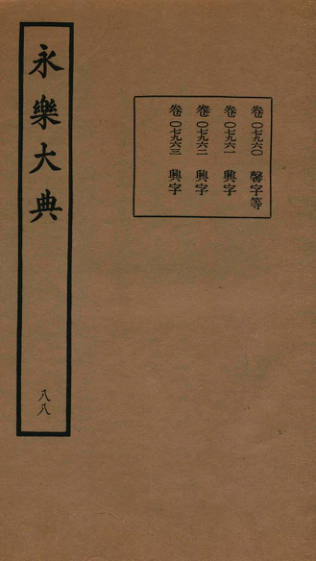 永樂大典
八八
卷〇七九六〇 馨字等
卷〇七九六一 興字
卷〇七九六二 興字
卷〇七九六三 興字